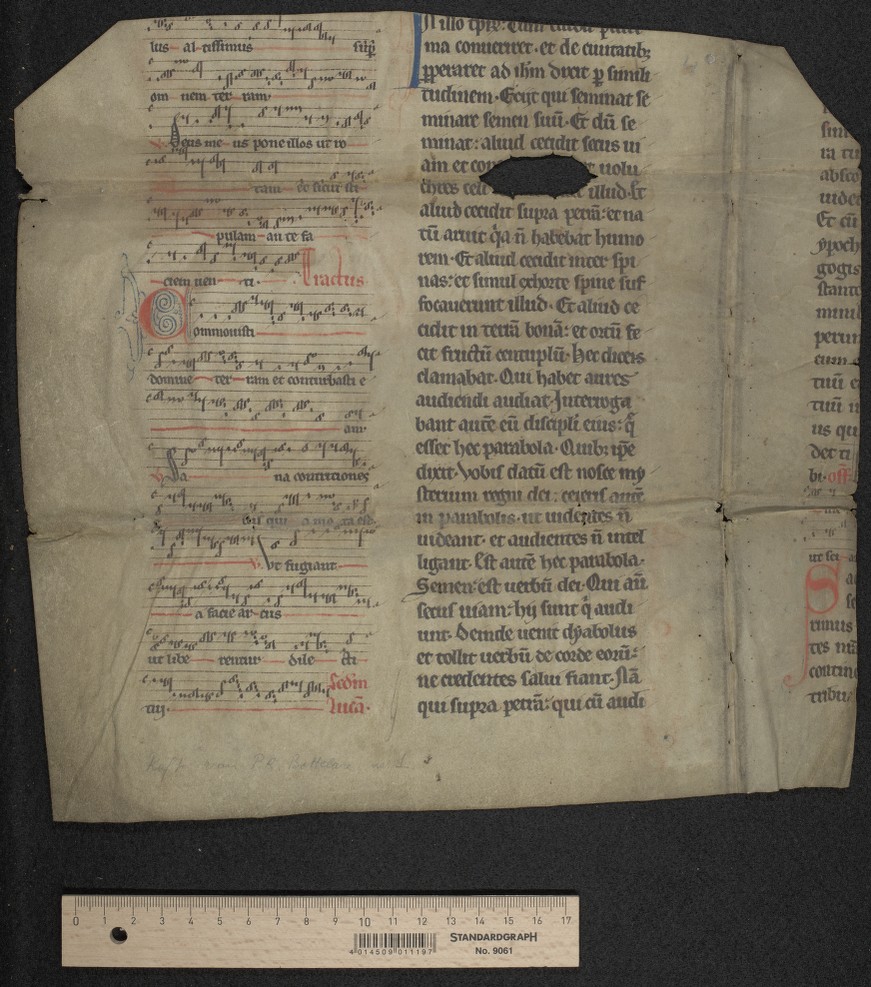 lus al tissimus sup̄
om nem ter ram·
Deus me us pone illos ut ro
tam et sicut sti
pulam an te fa
ciem uen ti· Tractus
Commouisti
domine ter ram et conturbasti e
am·
Sa na contritiones
eius qui a mo ta est
Vt fugiant
a facie ar cus
ut libe rentur dile cti
tui· Scdm
lucā·
In illo tp̄re: Cum turba pluri
ma conueniret· et de ciuitatib;
ꝓperaret ad ihm̄ dixit p̱ simili
tudinem· Exijt qui seminat se
minare semen suū· Et dū se
minat: aliud cecidit secus ui
am et con uolu
cres celi illud· Et
aliud cecidit supra petrā: et na
tū aruit q̄a n̄ habebat humo
rem· Et aliud cecidit inter spi
nas: et simul exhorte spine suf
focauerunt illud· Et aliud ce
cidit in terrā bonā: et ortū fe
cit fructū centuplū· Hec dicens
clamabat· Qui habet aures
audiendi audiat· Interroga
bant autē eū discipli eius: q̄
esset hec parabola· Quib; ip̄e
dixit· Vobis datū est nosce my
sterium regni dei: ceteris autē
in parabolis· ut uidentes n̄
uideant· et audientes n̄ intel
ligant· Est autē hec parabola·
Semen est uerbū dei· Qui aū
secus uiam: hij sunt q̄ audi
unt· Deinde uenit dyabolus
et tollit uerbū de corde eorū:
ne credentes salui fiant· Nā
qui supra petrā: qui cū audi
ra tu
absco
uidet
Et cū
ypoch
gogis
stante
minil
perun
cum
tuū e
tuū n
us qu
det ti
bi· off̄
ut sci
Sa
se
rimus
tes mu
contine
tribu
0 1 2 3 4 5 6 7 8 9 10 11 12 13 14 15 16 17
4 014509 011197
STANDARDGRAPH
No. 9061